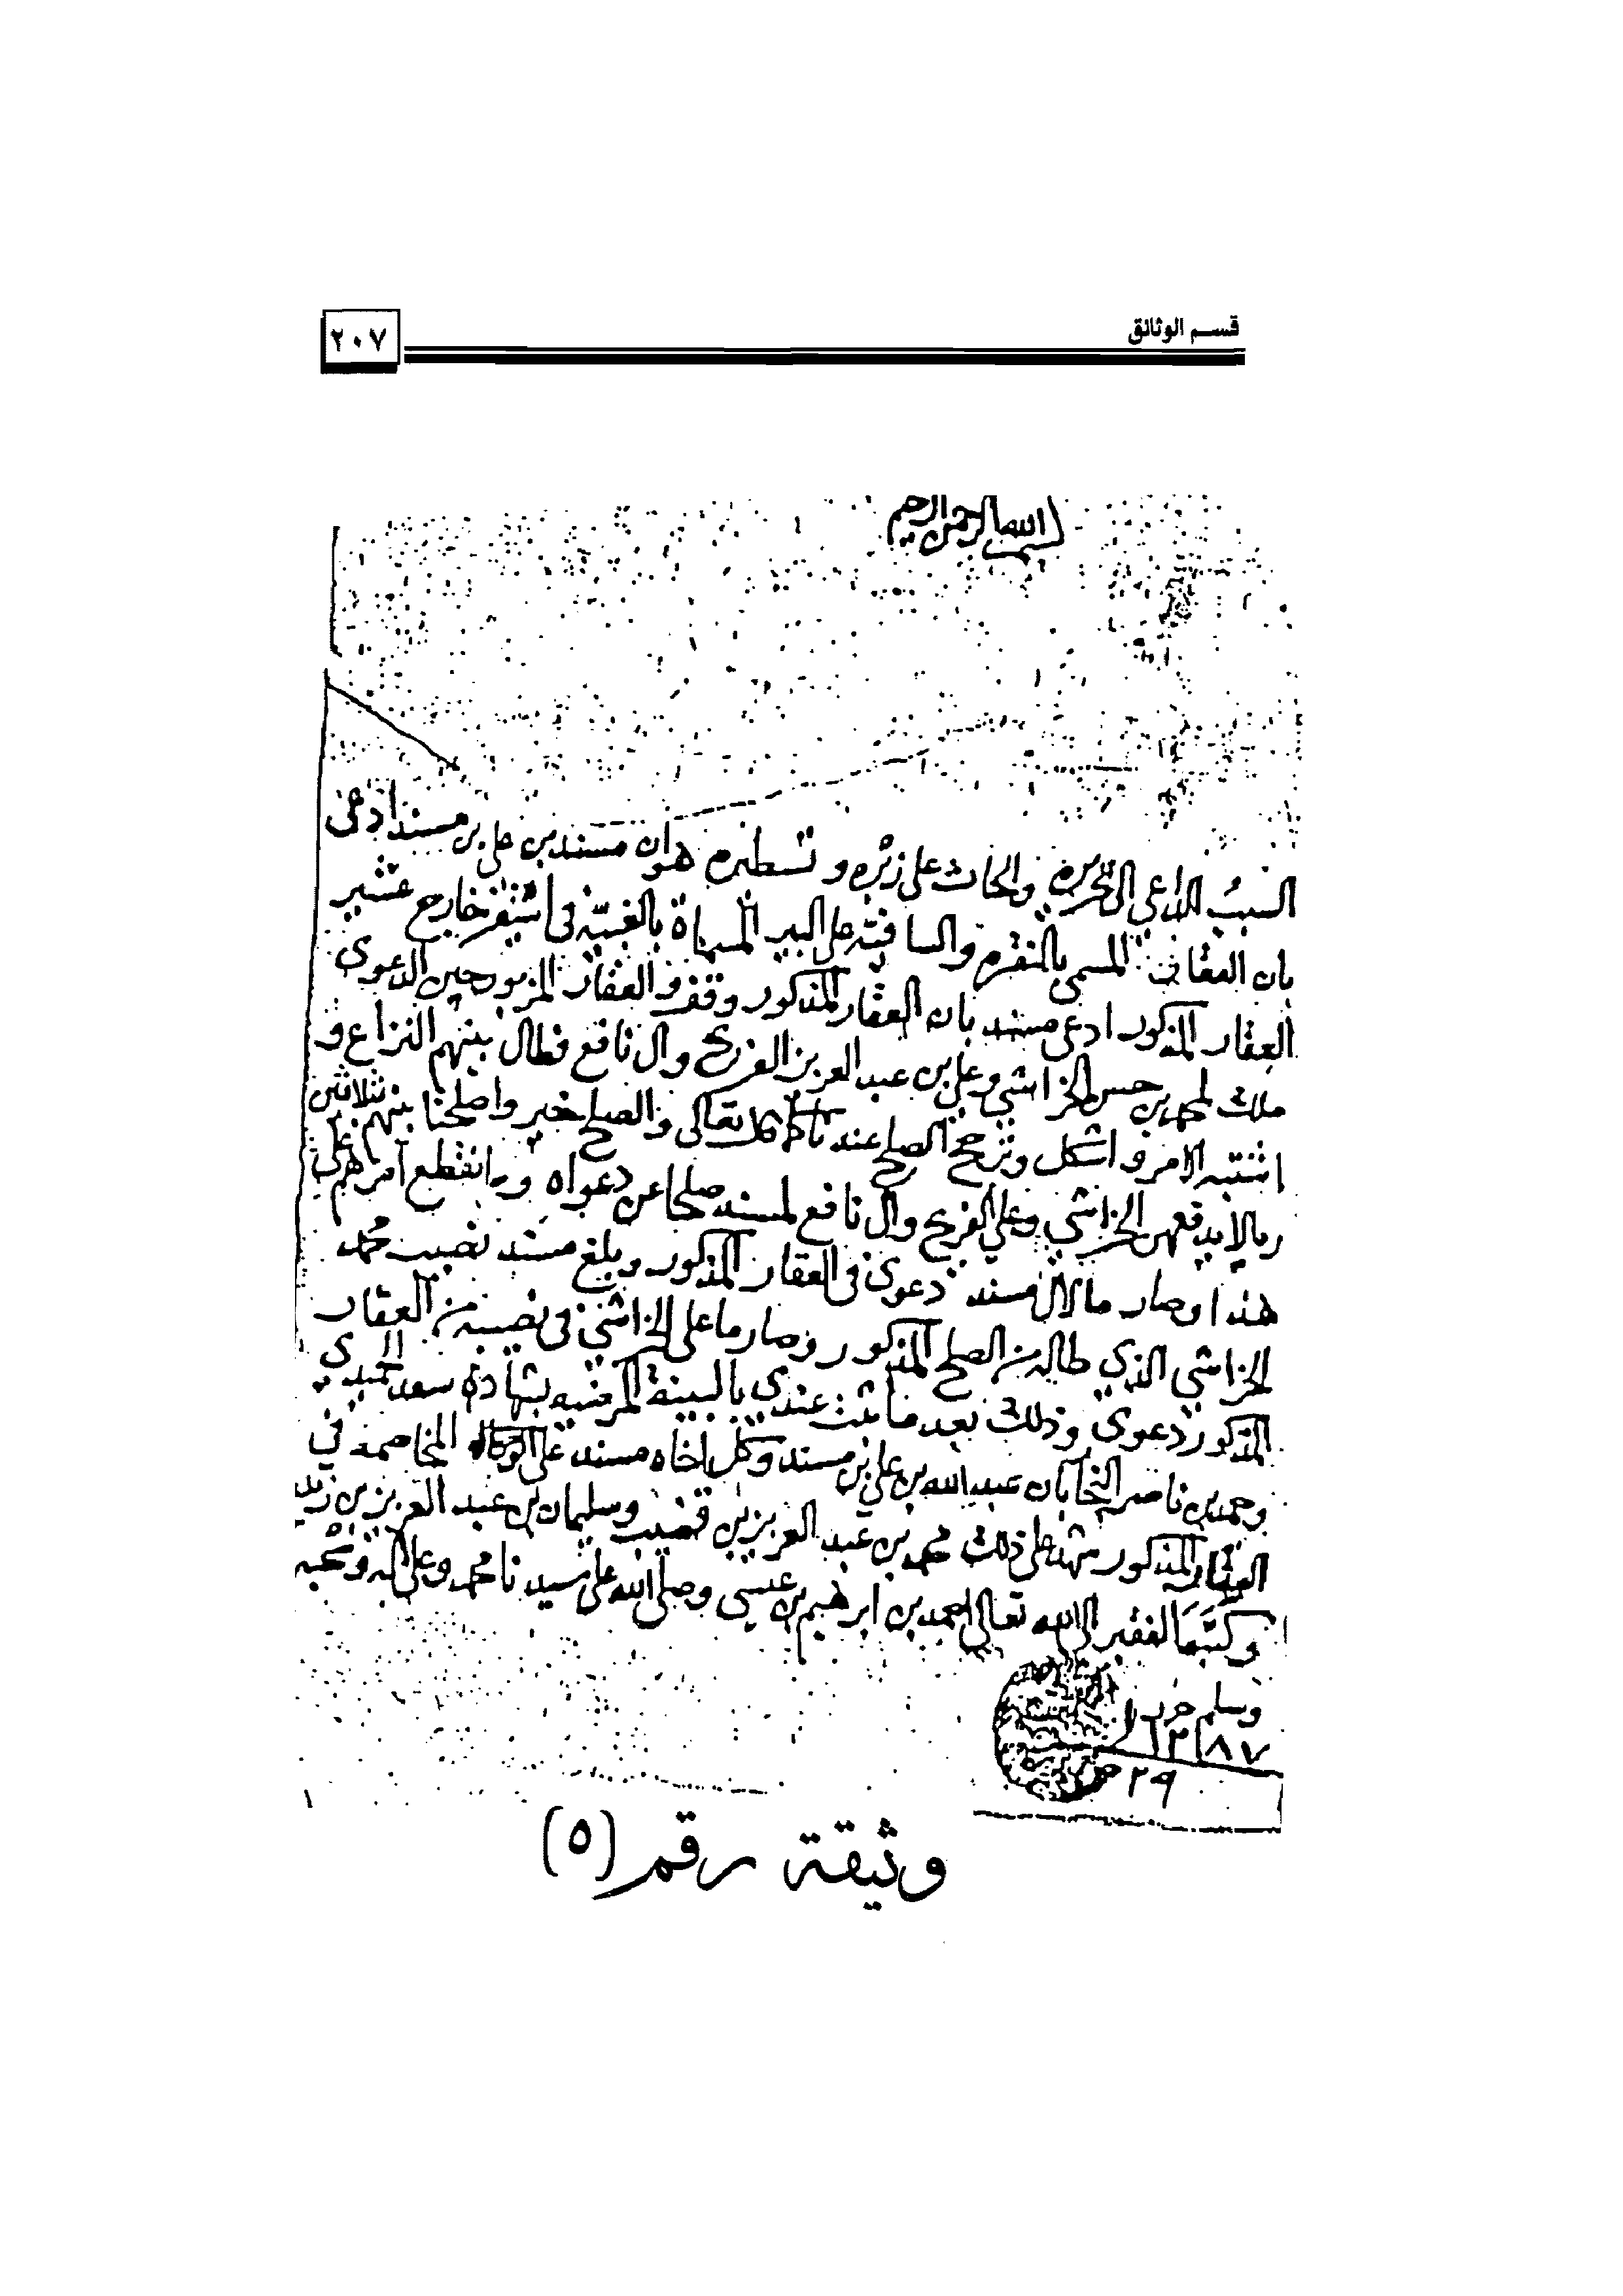 قسم الوثائق
٢٠٧
بسم الله الرحمن الرحيم
السبب الداعي الى تحريره والحاث على زبره وتسطيره هو ان مسند بن علي بن مسند ادعى
بان العقار المسمى بالنقرم والساقيه على البير المسماة بالغبيه في اشيقر خارج عشير
العقار المذكور ادعى مسند بان العقار المذكور وقف والعقار المزبور حين الدعوى
ملك لمحمد بن حسن الخراشي وعلي بن عبد العزيز الفريح وال نافع فطال بينهم النزاع و
اشتبه الامر واشكل وترجح الصلح عند قال تعالى والصلح خير واصلحنا بينهم بثلاثين
ريالا يدفعهن الخراشي وعلي الفريح وال نافع لمسند صلحا عن دعواه وانقطع امرهم على
هذا وصار ما لال مسند دعوى في العقار المذكور وبلغ مسند نصيب محمد
الخراشي الذي طاله من الصلح المذكور وصار ما على الخراشي في نصيبه من العقار
المذكور دعوى وذلك بعد ما ثبت عندي بالبينة المرضيه بشهادة سعد الحميدي
وحمد بن ناصر بان عبد الله بن علي بن مسند وكل اخاه مسند على المخاصمه في
العقار المذكور شهد على ذلك محمد بن عبد العزيز بن قضيب وسليمان بن عبد العزيز بن زيد
وكتبه الفقير الى الله تعالى احمد بن ابرهيم بن عيسى وصلى الله على سيدنا محمد وعلى اله وصحبه
وسلم حرر
١٢٨٧
٢٩
وثيقة رقم (٥)